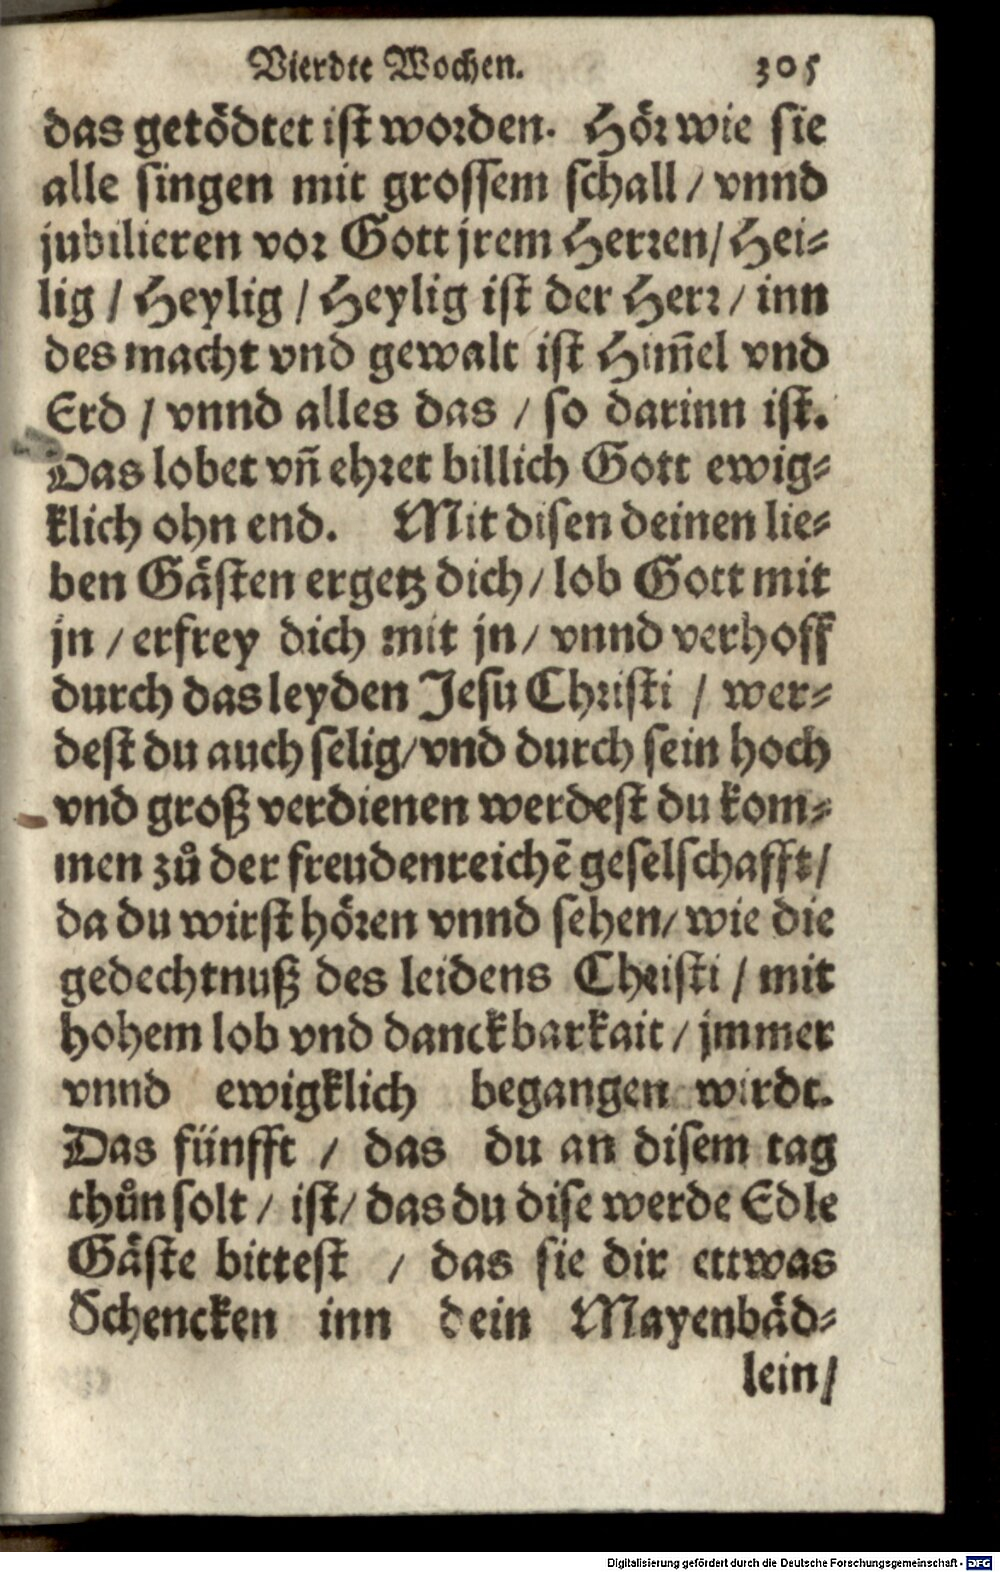 Vierdte Wochen. 305
das getödtet ist worden. Hör wie sie
alle singen mit grossem schall / vnnd
jubilieren vor Gott jrem Herren / Hei-
lig / Heylig / Heylig ist der Herr / inn
des macht vnd gewalt ist Him̃el vnd
Erd / vnnd alles das / so darinn ist.
Das lobet vñ ehret billich Gott ewig-
klich ohn end. Mit disen deinen lie-
ben Gästen ergetz dich / lob Gott mit
jn / erfrey dich mit jn / vnnd verhoff
durch das leyden Jesu Christi / wer-
dest du auch selig / vnd durch sein hoch
vnd groß verdienen werdest du kom-
men zů der freudenreichē geselschafft /
da du wirst hören vnnd sehen / wie die
gedechtnuß des leidens Christi / mit
hohem lob vnd danckbarkait / jmmer
vnnd ewigklich begangen wirdt.
Das fünfft / das du an disem tag
thůn solt / ist / das du dise werde Edle
Gäste bittest / das sie dir ettwas
Schencken inn dein Mayenbäd-
lein /
Digitalisierung gefördert durch die Deutsche Forschungsgemeinschaft - DFG